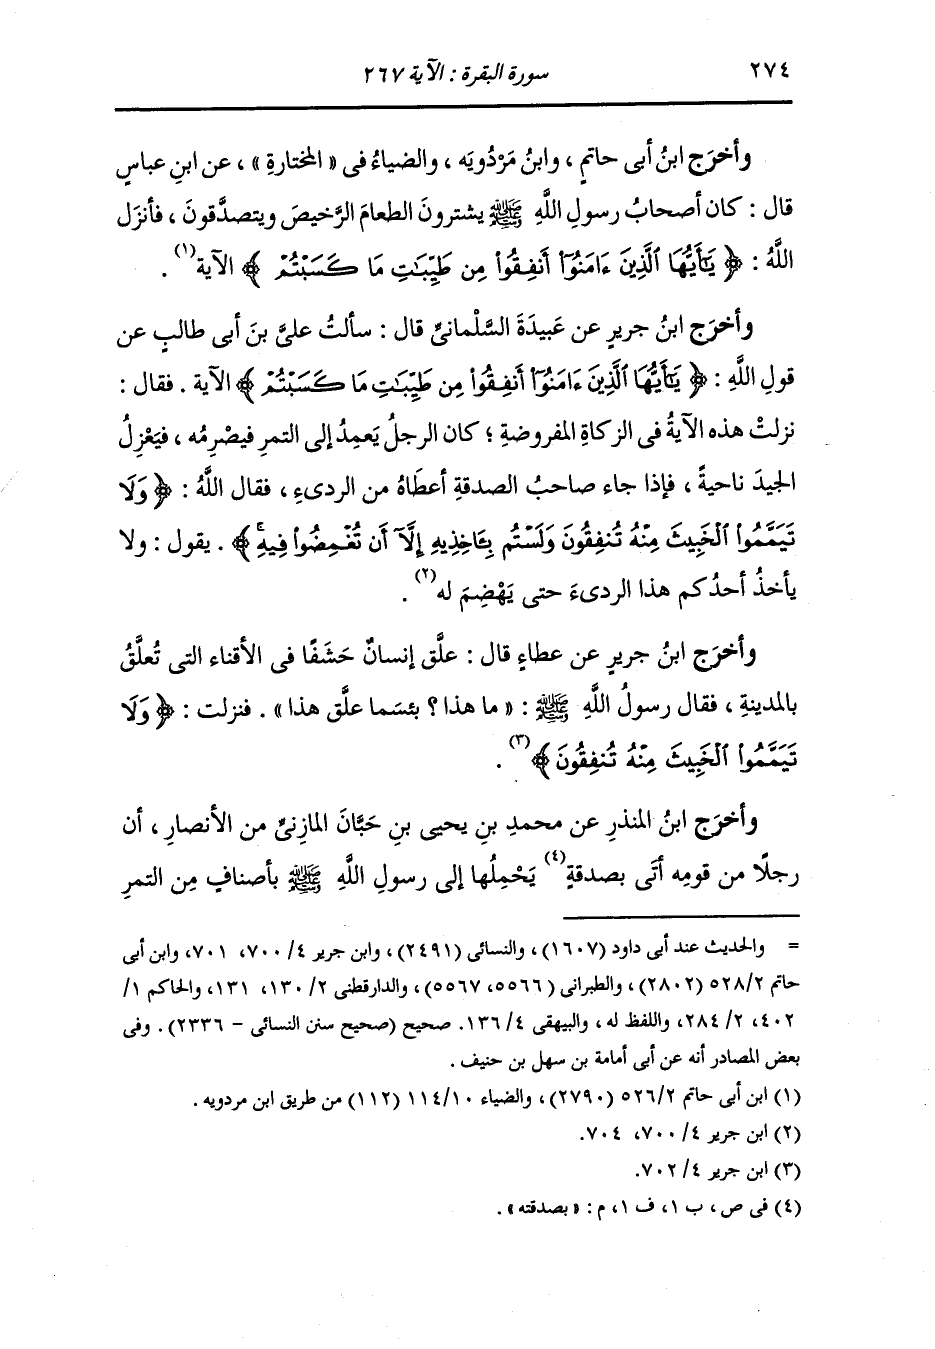 ٢٧٤ سورة البقرة : الآية ٢٦٧
وأخرَج ابنُ أبى حاتمٍ ، وابنُ مَرْدُويَه ، والضياءُ فى « المختارةِ » ، عن ابنِ عباسٍ
قال : كان أصحابُ رسولِ اللَّهِ ﷺ يشترونَ الطعامَ الرَّخيصَ ويتصدَّقونَ ، فأنزَل
اللَّهُ : ﴿ يَٰٓأَيُّهَا ٱلَّذِينَ ءَامَنُوٓا۟ أَنفِقُوا۟ مِن طَيِّبَٰتِ مَا كَسَبْتُمْ ﴾ الآية(١) .
وأخرَج ابنُ جريرٍ عن عَبِيدَةَ السَّلْمانىِّ قال : سألتُ علىَّ بنَ أبى طالبٍ عن
قولِ اللَّهِ : ﴿ يَٰٓأَيُّهَا ٱلَّذِينَ ءَامَنُوٓا۟ أَنفِقُوا۟ مِن طَيِّبَٰتِ مَا كَسَبْتُمْ ﴾ الآية . فقال :
نزلتْ هذه الآيةُ فى الزكاةِ المفروضةِ ؛ كان الرجلُ يَعمِدُ إلى التمرِ فيصْرِمُه ، فيَعْزِلُ
الجيدَ ناحيةً ، فإذا جاء صاحبُ الصدقةِ أعطَاهُ من الردىءِ ، فقال اللَّهُ : ﴿ وَلَا
تَيَمَّمُوا۟ ٱلْخَبِيثَ مِنْهُ تُنفِقُونَ وَلَسْتُم بِـَٔاخِذِيهِ إِلَّآ أَن تُغْمِضُوا۟ فِيهِ ۚ ﴾ . يقول : ولا
يأخذُ أحدُكم هذا الردىءَ حتى يَهْضِمَ له(٢) .
وأخرَج ابنُ جريرٍ عن عطاءٍ قال : علَّق إنسانٌ حَشَفًا فى الأقناء التى تُعلَّقُ
بالمدينةِ ، فقال رسولُ اللَّهِ ﷺ : « ما هذا ؟ بئسَما علَّق هذا » . فنزلت : ﴿ وَلَا
تَيَمَّمُوا۟ ٱلْخَبِيثَ مِنْهُ تُنفِقُونَ ﴾(٣) .
وأخرَج ابنُ المنذرِ عن محمدِ بنِ يحيى بنِ حَبَّانَ المازنىِّ من الأنصارِ ، أن
رجلًا من قومِه أتَى بصدقةٍ(٤) يَحْمِلُها إلى رسولِ اللَّهِ ﷺ بأصنافٍ مِن التمرِ
= والحديث عند أبى داود (١٦٠٧) ، والنسائى (٢٤٩١) ، وابن جرير ٤/ ٧٠٠، ٧٠١، وابن أبى
حاتم ٥٢٨/٢ (٢٨٠٢) ، والطبرانى (٥٥٦٦، ٥٥٦٧) ، والدارقطنى ٢/ ١٣٠، ١٣١، والحاكم ١/
٤٠٢، ٢/ ٢٨٤، واللفظ له ، والبيهقى ٤/ ١٣٦. صحيح (صحيح سنن النسائى – ٢٣٣٦) . وفى
بعض المصادر أنه عن أبى أمامة بن سهل بن حنيف .
(١) ابن أبى حاتم ٥٢٦/٢ (٢٧٩٠) ، والضياء ١١٤/١٠ (١١٢) من طريق ابن مردويه .
(٢) ابن جرير ٤/ ٧٠٠، ٧٠٤.
(٣) ابن جرير ٤/ ٧٠٢.
(٤) فى ص ، ب ١، ف ١، م : « بصدقته » .